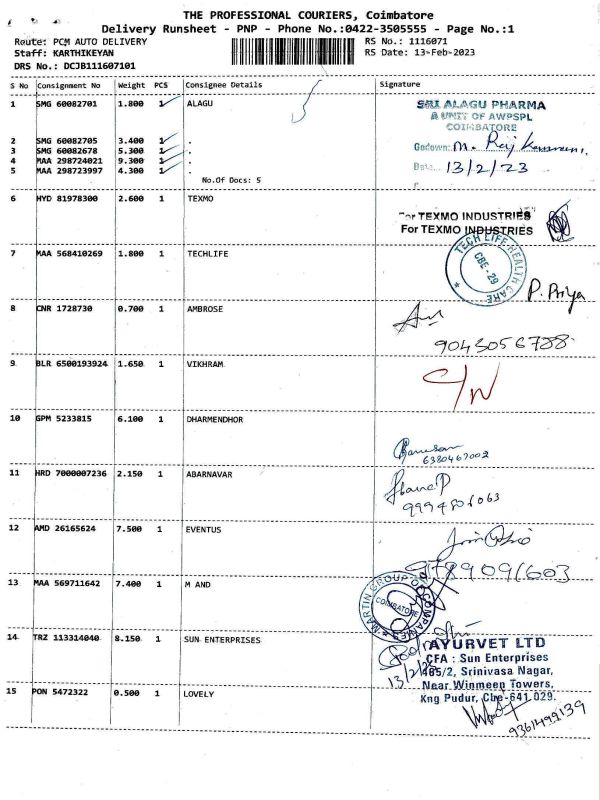 THE PROFESSIONAL COURIERS, Coimbatore
Delivery Runsheet - PNP - Phone No.:0422-3505555 - Page No.:1
Route: PCM AUTO DELIVERY
RS No.: 1116071
Staff: KARTHIKEYAN
RS Date: 13-Feb-2023
DRS No.: DCJB111607101
S No Consignment No Weight PCS Consignee Details Signature
1 SMG 60082701 1.800 1 ALAGU
SRI ALAGU PHARMA
A UNIT OF AWPSPL
COIMBATORE
2 SMG 60082705 3.400 1 .
3 SMG 60082678 5.300 1 .
Godown: M.
4 MAA 298724021 9.300 1 .
5 MAA 298723997 4.300 1 .
Date: 13/2/23
No.Of Docs: 5
6 HYD 81978300 2.600 1 TEXMO
For TEXMO INDUSTRIES
For TEXMO INDUSTRIES
7 MAA 568410269 1.800 1 TECHLIFE
TECH LIFE HEALTH CARE
CBE - 29
P. Priya
8 CNR 1728730 0.700 1 AMBROSE
9043056788
9 BLR 6500193924 1.650 1 VIKHRAM
C/N
10 GPM 5233815 6.100 1 DHARMENDHOR
6380467002
11 HRD 7000007236 2.150 1 ABARNAVAR
9994806063
12 AMD 26165624 7.500 1 EVENTUS
9789091603
13 MAA 569711642 7.400 1 M AND
MARTIN GROUP OF COMPANIES
COIMBATORE
14 TRZ 113314040 8.150 1 SUN ENTERPRISES
AYURVET LTD
CFA : Sun Enterprises
465/2, Srinivasa Nagar,
13/2/23
Near Winmeen Towers,
Kng Pudur, Cbe-641 029.
15 PON 5472322 0.500 1 LOVELY
9361499139